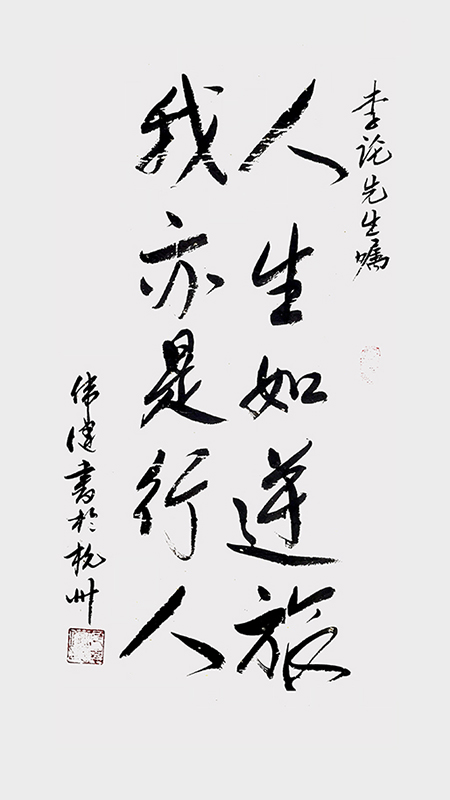 李论先生嘱
人生如逆旅
我亦是行人
伟健书于杭州